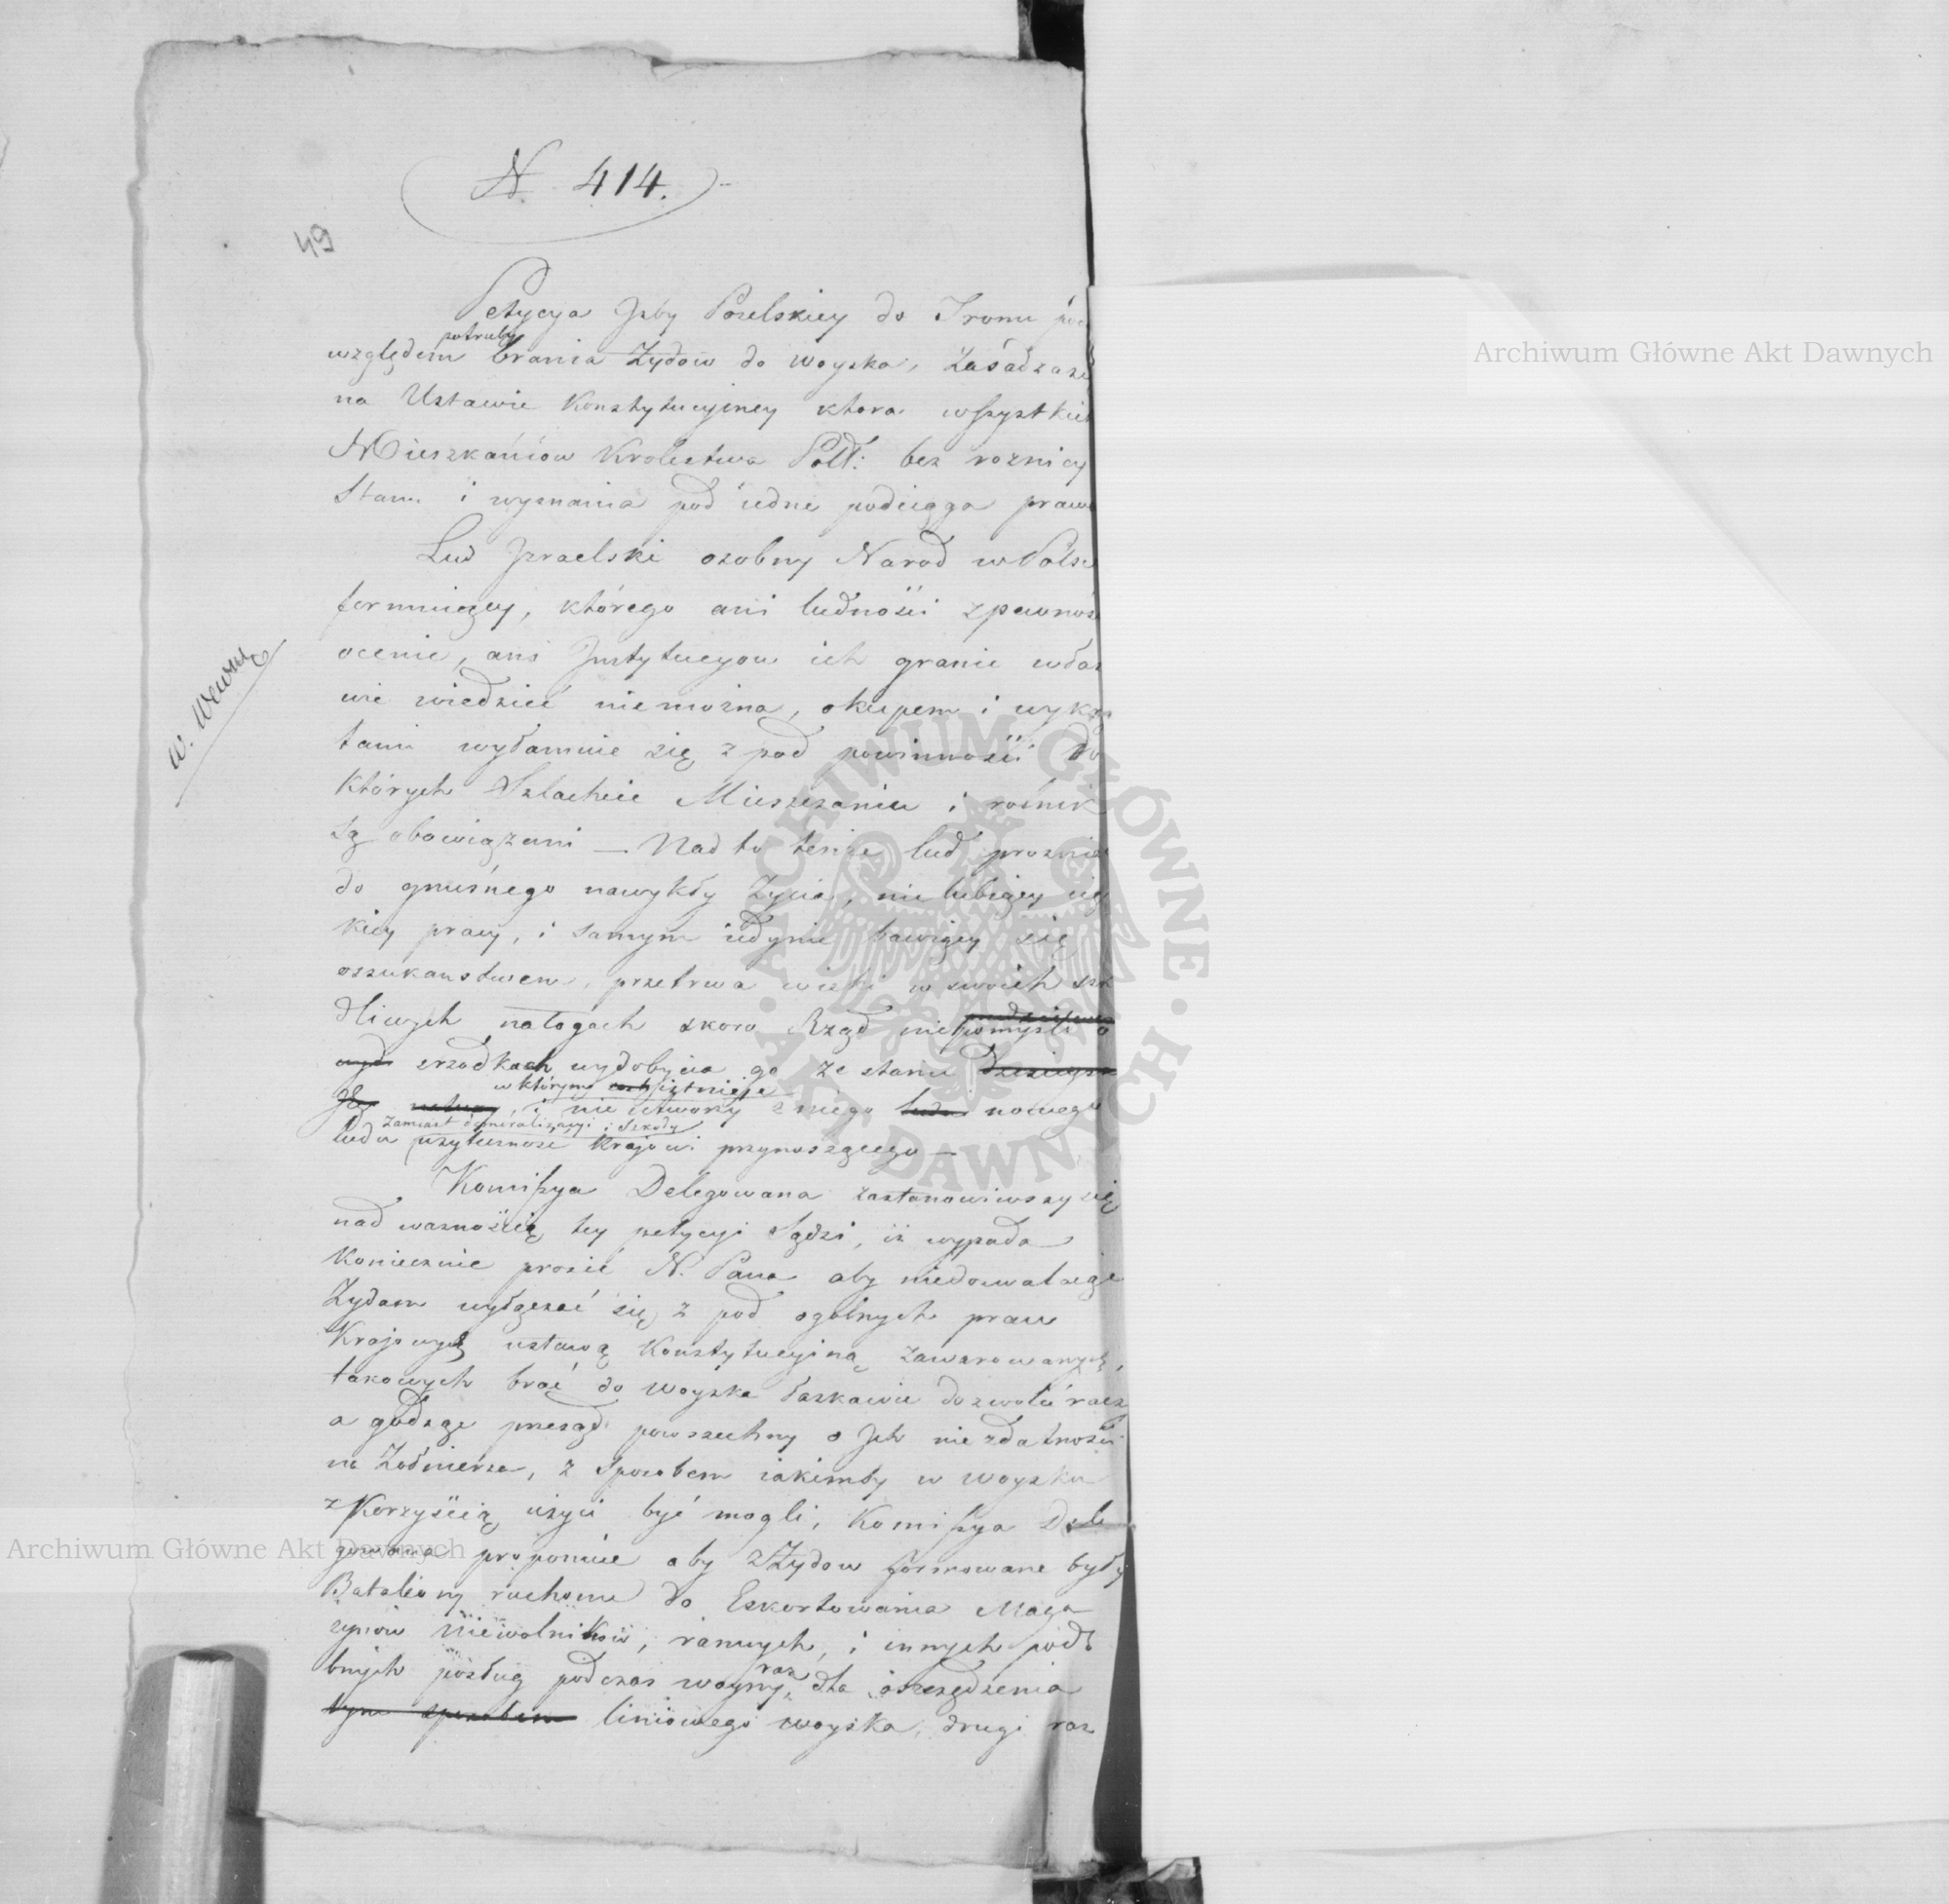 N. 414.
49
Petycya Jzby Poselskiey do Tronu
potrzeby
względem brania Zydow do woyska, zasadza się
na Ustawie Konstytucyiney ktora wszystkich
Mieszkańców Krolestwa Poll: bez roznicy
stanu i wyznania pod iedne podciąga prawo
Lud Jzraelski osobny Narod w Polsce
formuiący, którego ani ludności z pewnoś
ocenić, ani Jnstytucyow ich granic
wie wiedzieć niemożna, okupem i wykrę
tami wyłamuie się z pod powinności do
których Szlachcic Mieszczanin i rolnik
są obowiązani — Nad to tenże lud
do gnuśnego nawykły życia, nie lubiący cięż
kiey pracy, i samym iedynie bawiący się
oszukanstwem, przetrwa wieki w swoich szk
dliwych nałogach skoro Rząd nie pomyśli o
srzodkach wydobycia go ze stanu
w którym istnieje
i nie utworzy z niego nowego
zamiast demoralizacyi i szkody
ludu użyteczność Krajowi przynoszącego —
Komissya Delegowana zastanowiwszy się
nad ważnością tey petycyi sądzi, iż wypada
koniecznie prosić N. Pana aby niedozwalaiąc
Zydom wyłączać się z pod ogolnych praw
Krajowych ustawą Konstytucyiną zawarowanych,
takowych brać do woyska łaskawie dozwolić racz
a godząc przesąd powszechny o Jch niezdatności
na Żołnierza, z sposobem iakimby w woysku
z korzyścią użyci być mogli, Komissya Dele
gowana proponuie aby z Żydow formowane były
Bataliony ruchome do Eskortowania Maga
zynów niewolników, rannych, i innych podo
bnych posług podczas woyny, raz dla oszczędzenia
tym sposobem liniowego woyska, drugi raz
W. Wewn
Archiwum Główne Akt Dawnych
Archiwum Główne Akt Dawnych
ARCHIWUM GŁÓWNE · AKT DAWNYCH ·